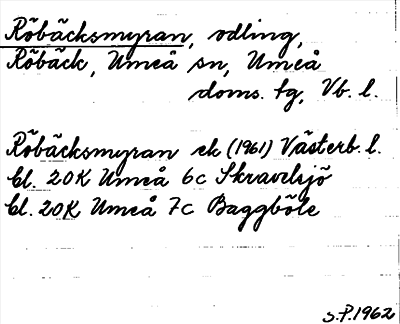 Röbäcksmyran, odling,
Röbäck, Umeå sn, Umeå
doms. tg, Vb. l.
Röbäcksmyran ek (1961) Västerb. l.
bl. 20K Umeå 6c Skravelsjö
bl. 20K Umeå 7c Baggböle
S.P. 1962